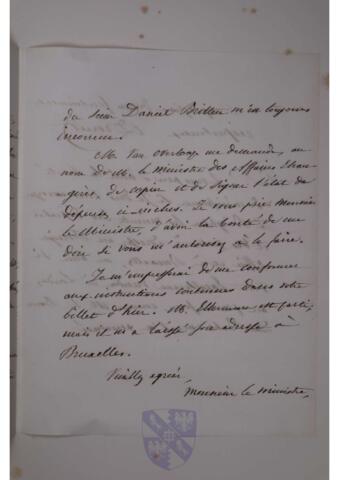 du Sieur Daniel Britten m'est toujours
inconnue.
M. Van Overloop me demande, au
nom de M. le Ministre des Affaires Etran-
gères, de copier et de signer l'état des
dépenses ci-inclus. Je vous prie Monsieur
le Ministre, d'avoir la bonté de me
dire si vous m'autorisez à le faire.
Je m'empresserai de me conformer
aux instructions contenues dans votre
billet d'hier. M. est parti,
mais il m'a laissé son adresse à
Bruxelles.
Veuillez agréer,
Monsieur le Ministre,